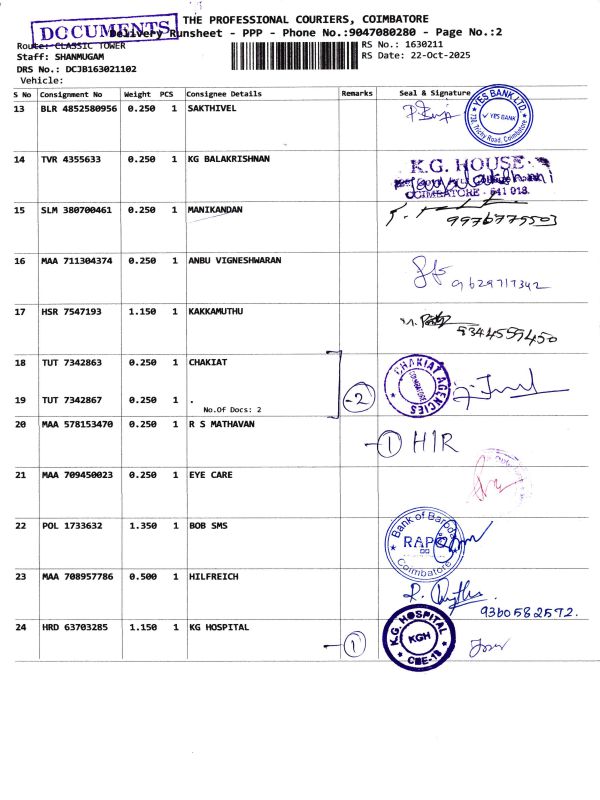 THE PROFESSIONAL COURIERS, COIMBATORE
DOCUMENTS
Delivery Runsheet - PPP - Phone No.:9047080280 - Page No.:2
Route: CLASSIC TOWER
RS No.: 1630211
Staff: SHANMUGAM
RS Date: 22-Oct-2025
DRS No.: DCJB163021102
Vehicle:
S No Consignment No Weight PCS Consignee Details Remarks Seal & Signature
13 BLR 4852580956 0.250 1 SAKTHIVEL
YES BANK LTD.
YES BANK
Trichy Road, Coimbatore
14 TVR 4355633 0.250 1 KG BALAKRISHNAN
K.G. HOUSE
COIMBATORE - 641 018.
15 SLM 380700461 0.250 1 MANIKANDAN
9976775503
16 MAA 711304374 0.250 1 ANBU VIGNESHWARAN
9629717342
17 HSR 7547193 1.150 1 KAKKAMUTHU
9344559450
18 TUT 7342863 0.250 1 CHAKIAT
CHAKIAT AGENCIES
19 TUT 7342867 0.250 1 .
-2
No.Of Docs: 2
20 MAA 578153470 0.250 1 R S MATHAVAN
-1 HIR
21 MAA 709450023 0.250 1 EYE CARE
22 POL 1733632 1.350 1 BOB SMS
Bank of Baroda
RAPC
Coimbatore
23 MAA 708957786 0.500 1 HILFREICH
9360582572.
24 HRD 63703285 1.150 1 KG HOSPITAL
-1
K.G. HOSPITAL
KGH
CBE-18